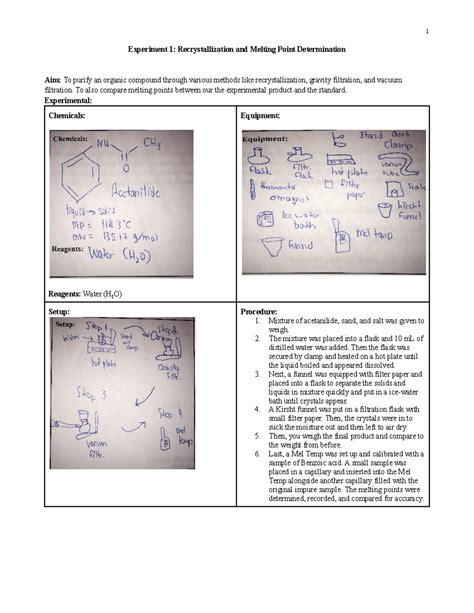 1
Experiment 1: Recrystallization and Melting Point Determination
Aim: To purify an organic compound through various methods like recrystallization, gravity filtration, and vacuum
filtration. To also compare melting points between our the experimental product and the standard.
Experimental:
Chemicals:
Chemicals:
NH
CH3
O
Acetanilide
liquid → solid
MP = 114.3°C
MW = 135.17 g/mol
Reagents: Water (H2O)
Reagents: Water (H2O)
Equipment:
Equipment:
Stand and
Clamp
flask
filtr.
flask
hot plate
vacuum
tube
thermometer
magnet
filter
paper
Scale
Ice water
bath
Kirsht
funnel
funnel
Mel temp
Setup:
Setup:
Step 1
Step 2
Water
Stand
Clamp
hot plate
Gravity
filtr.
Step 3
Step 4
vacuum
filtr.
Mel
temp
Procedure:
1. Mixture of acetanilide, sand, and salt was given to
weigh.
2. The mixture was placed into a flask and 10 mL of
distilled water was added. Then the flask was
secured by clamp and heated on a hot plate until
the liquid boiled and appeared dissolved.
3. Next, a funnel was equipped with filter paper and
placed into a flask to separate the solids and
liquids in mixture quickly and put in a ice-water
bath until crystals appear.
4. A Kirsht funnel was put on a filtration flask with
small filter paper. Then, the crystals were in to
suck the moisture out and then left to air dry.
5. Then, you weigh the final product and compare to
the weight from before.
6. Last, a Mel Temp was set up and calibrated with a
sample of Benzoic acid. A small sample was
placed in a capillary and inserted into the Mel
Temp alongside another capillary filled with the
original impure sample. The melting points were
determined, recorded, and compared for accuracy.